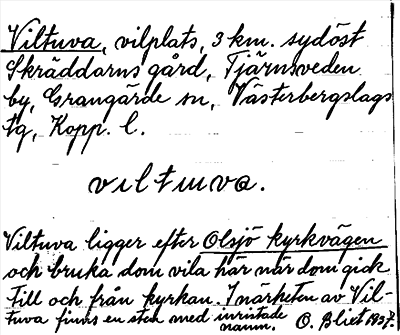 Viltuva, vilplats, 3 km. sydöst
Skräddarns gård, Tjärnsveden
by, Grangärde sn, Västerbergslags
tg, Kopp. l.
viltuva.
Viltuva ligger efter Olsjö kyrkvägen
och bruka dom vila här när dom gick
till och från kyrkan. I närheten av Vil-
tuva finns en sten med inristade
namn. O. Bliet 1937.